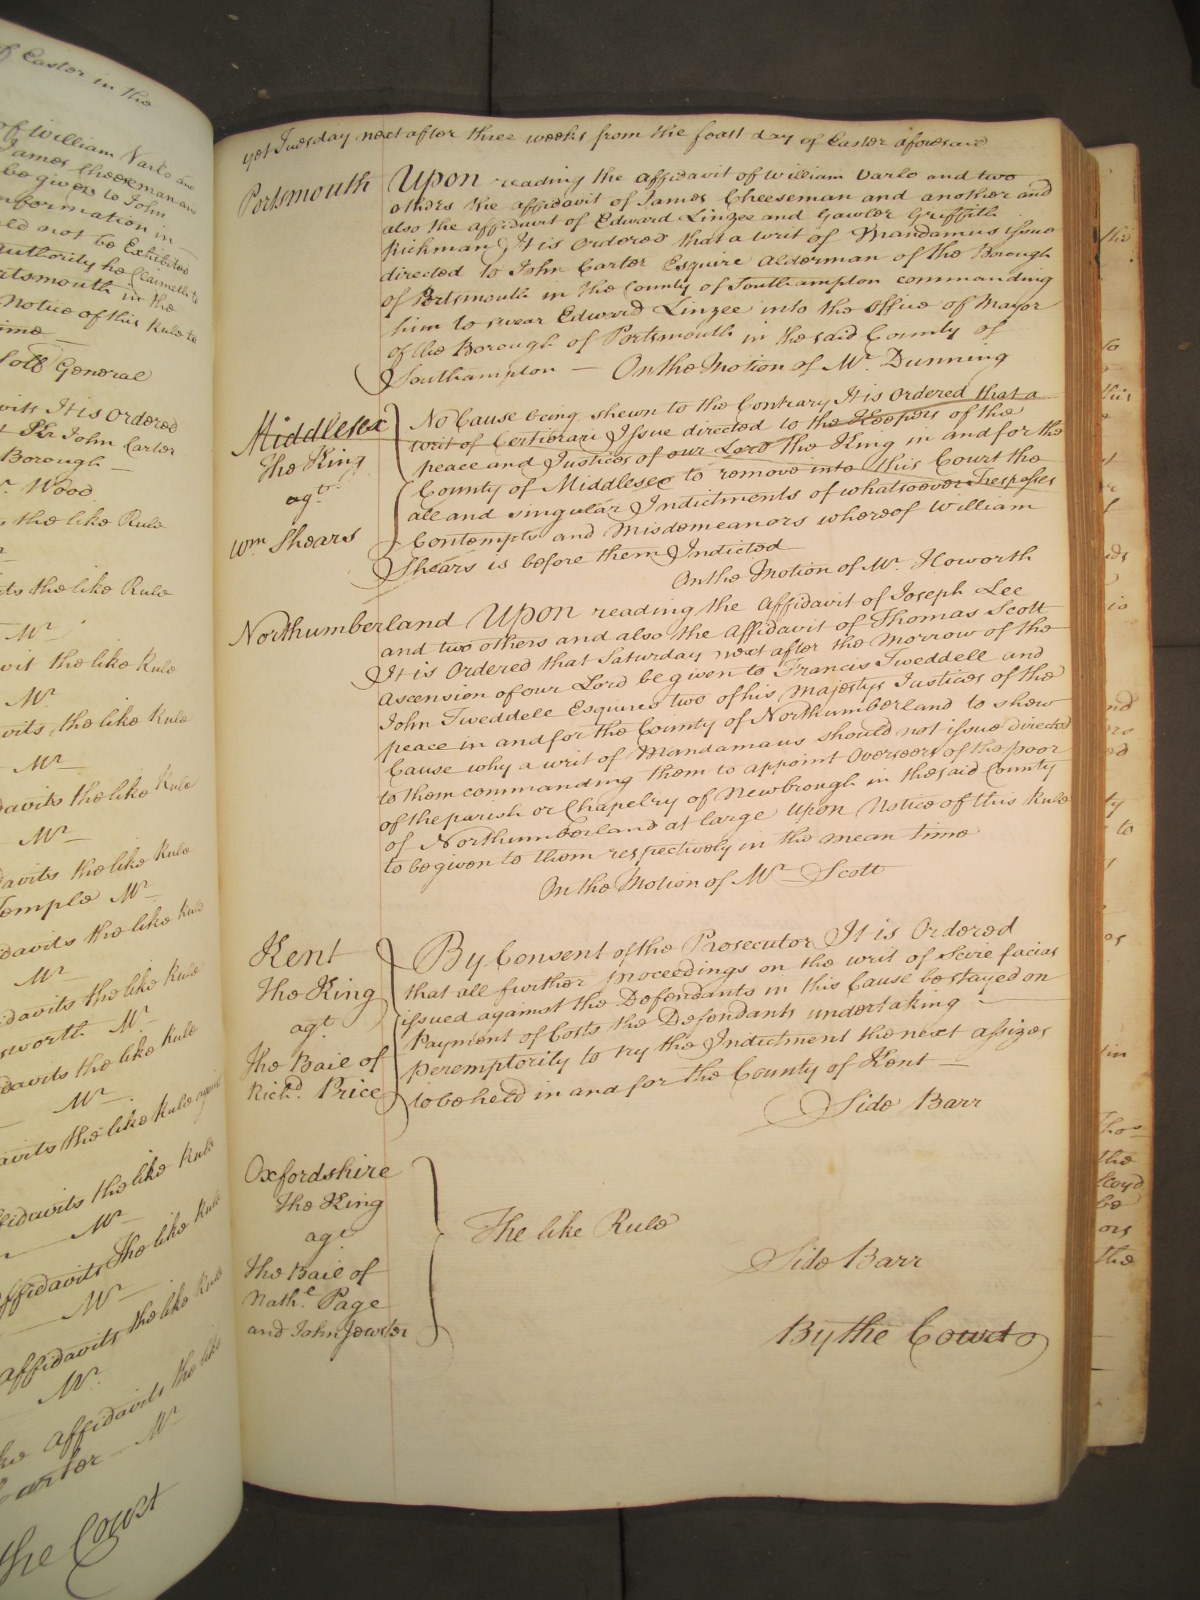 of Easter in the
of William Varlo and
James Cheeseman an
be given to John
nformation in
ld not be Exhibited
authority he Claimeth to
rtsmouth in the
Notice of this Rule to
ime
Sollr General
vits It is Ordered
John Carter
Borough
Mr. Wood
s the like Rule
its the like Rule
Mr
vit the like Rule
Mr
vits the like Rule
Mr
davits the like Rule
Mr
davits the like Rule
Temple Mr
idavits the like Rule
Mr
idavits the like Rule
sworth Mr
davits the like Rule
Mr
avits the like Rule again
fidavits the like Rule
Mr
Affidavits the like Rule
Mr
Affidavits the like Rule
Mr
Affidavits the like
Carter Mr
the Court
yet Tuesday next after three weeks from the feast day of Easter aforesaid
Portsmouth Upon reading the affidavit of William Varlo and two
others the affidavit of James Cheeseman and another and
also the affidavit of Edward Linzee and Gawler Griffith
Rickman It is Ordered that a writ of Mandamus issue
directed to John Carter Esquire Alderman of the Borough
of Portsmouth in the County of Southampton commanding
him to swear Edward Linzee into the Office of Mayor
of the Borough of Portsmouth in the said County of
Southampton — On the Motion of Mr. Dunning
Middlesex
The King
agt.
Wm Shears
No Cause being shewn to the Contrary It is Ordered that a
writ of Certiorari Issue directed to the Keepers of the
peace and Justices of our Lord the King in and for the
County of Middlesex to remove into this Court the
all and singular Indictments of whatsoever Trespasses
Contempts and Misdemeanors whereof William
Shears is before them Indicted
On the Motion of Mr. Howorth
Northumberland Upon reading the Affidavit of Joseph Lee
and two others and also the Affidavit of Thomas Scott
It is Ordered that Saturday next after the Morrow of the
Ascension of our Lord be given to Francis Tweddell and
John Tweddell Esquires two of his Majestys Justices of the
peace in and for the County of Northumberland to shew
Cause why a writ of Mandamus should not issue directed
to them commanding them to appoint Overseers of the poor
of the parish or Chapelry of Newbrough in the said County
of Northumberland at large Upon Notice of this Rule
to be given to them respectively in the mean time
On the Motion of Mr Scott
Kent
The King
agt
The Bail of
Richd. Price
By Consent of the Prosecutor It is Ordered
that all further proceedings on the writ of Scire facias
issued against the Defendants in this Cause be stayed on
Payment of Costs the Defendants undertaking
peremptorily to try the Indictment the next assizes
to be held in and for the County of Kent —
Side Barr
Oxfordshire
The King
agt
The Bail of
Nathl. Page
and John
The like Rule
Side Barr
By the Court